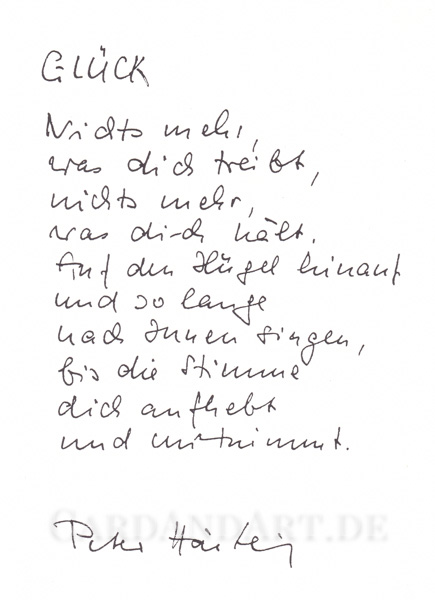 GLÜCK
Nichts mehr,
was dich treibt,
nichts mehr,
was dich hält.
Auf den Hügel hinauf
und so lange
nach Innen singen,
bis die Stimme
dich aufhebt
und mitnimmt.
CARDANDART.DE
Peter Härtling